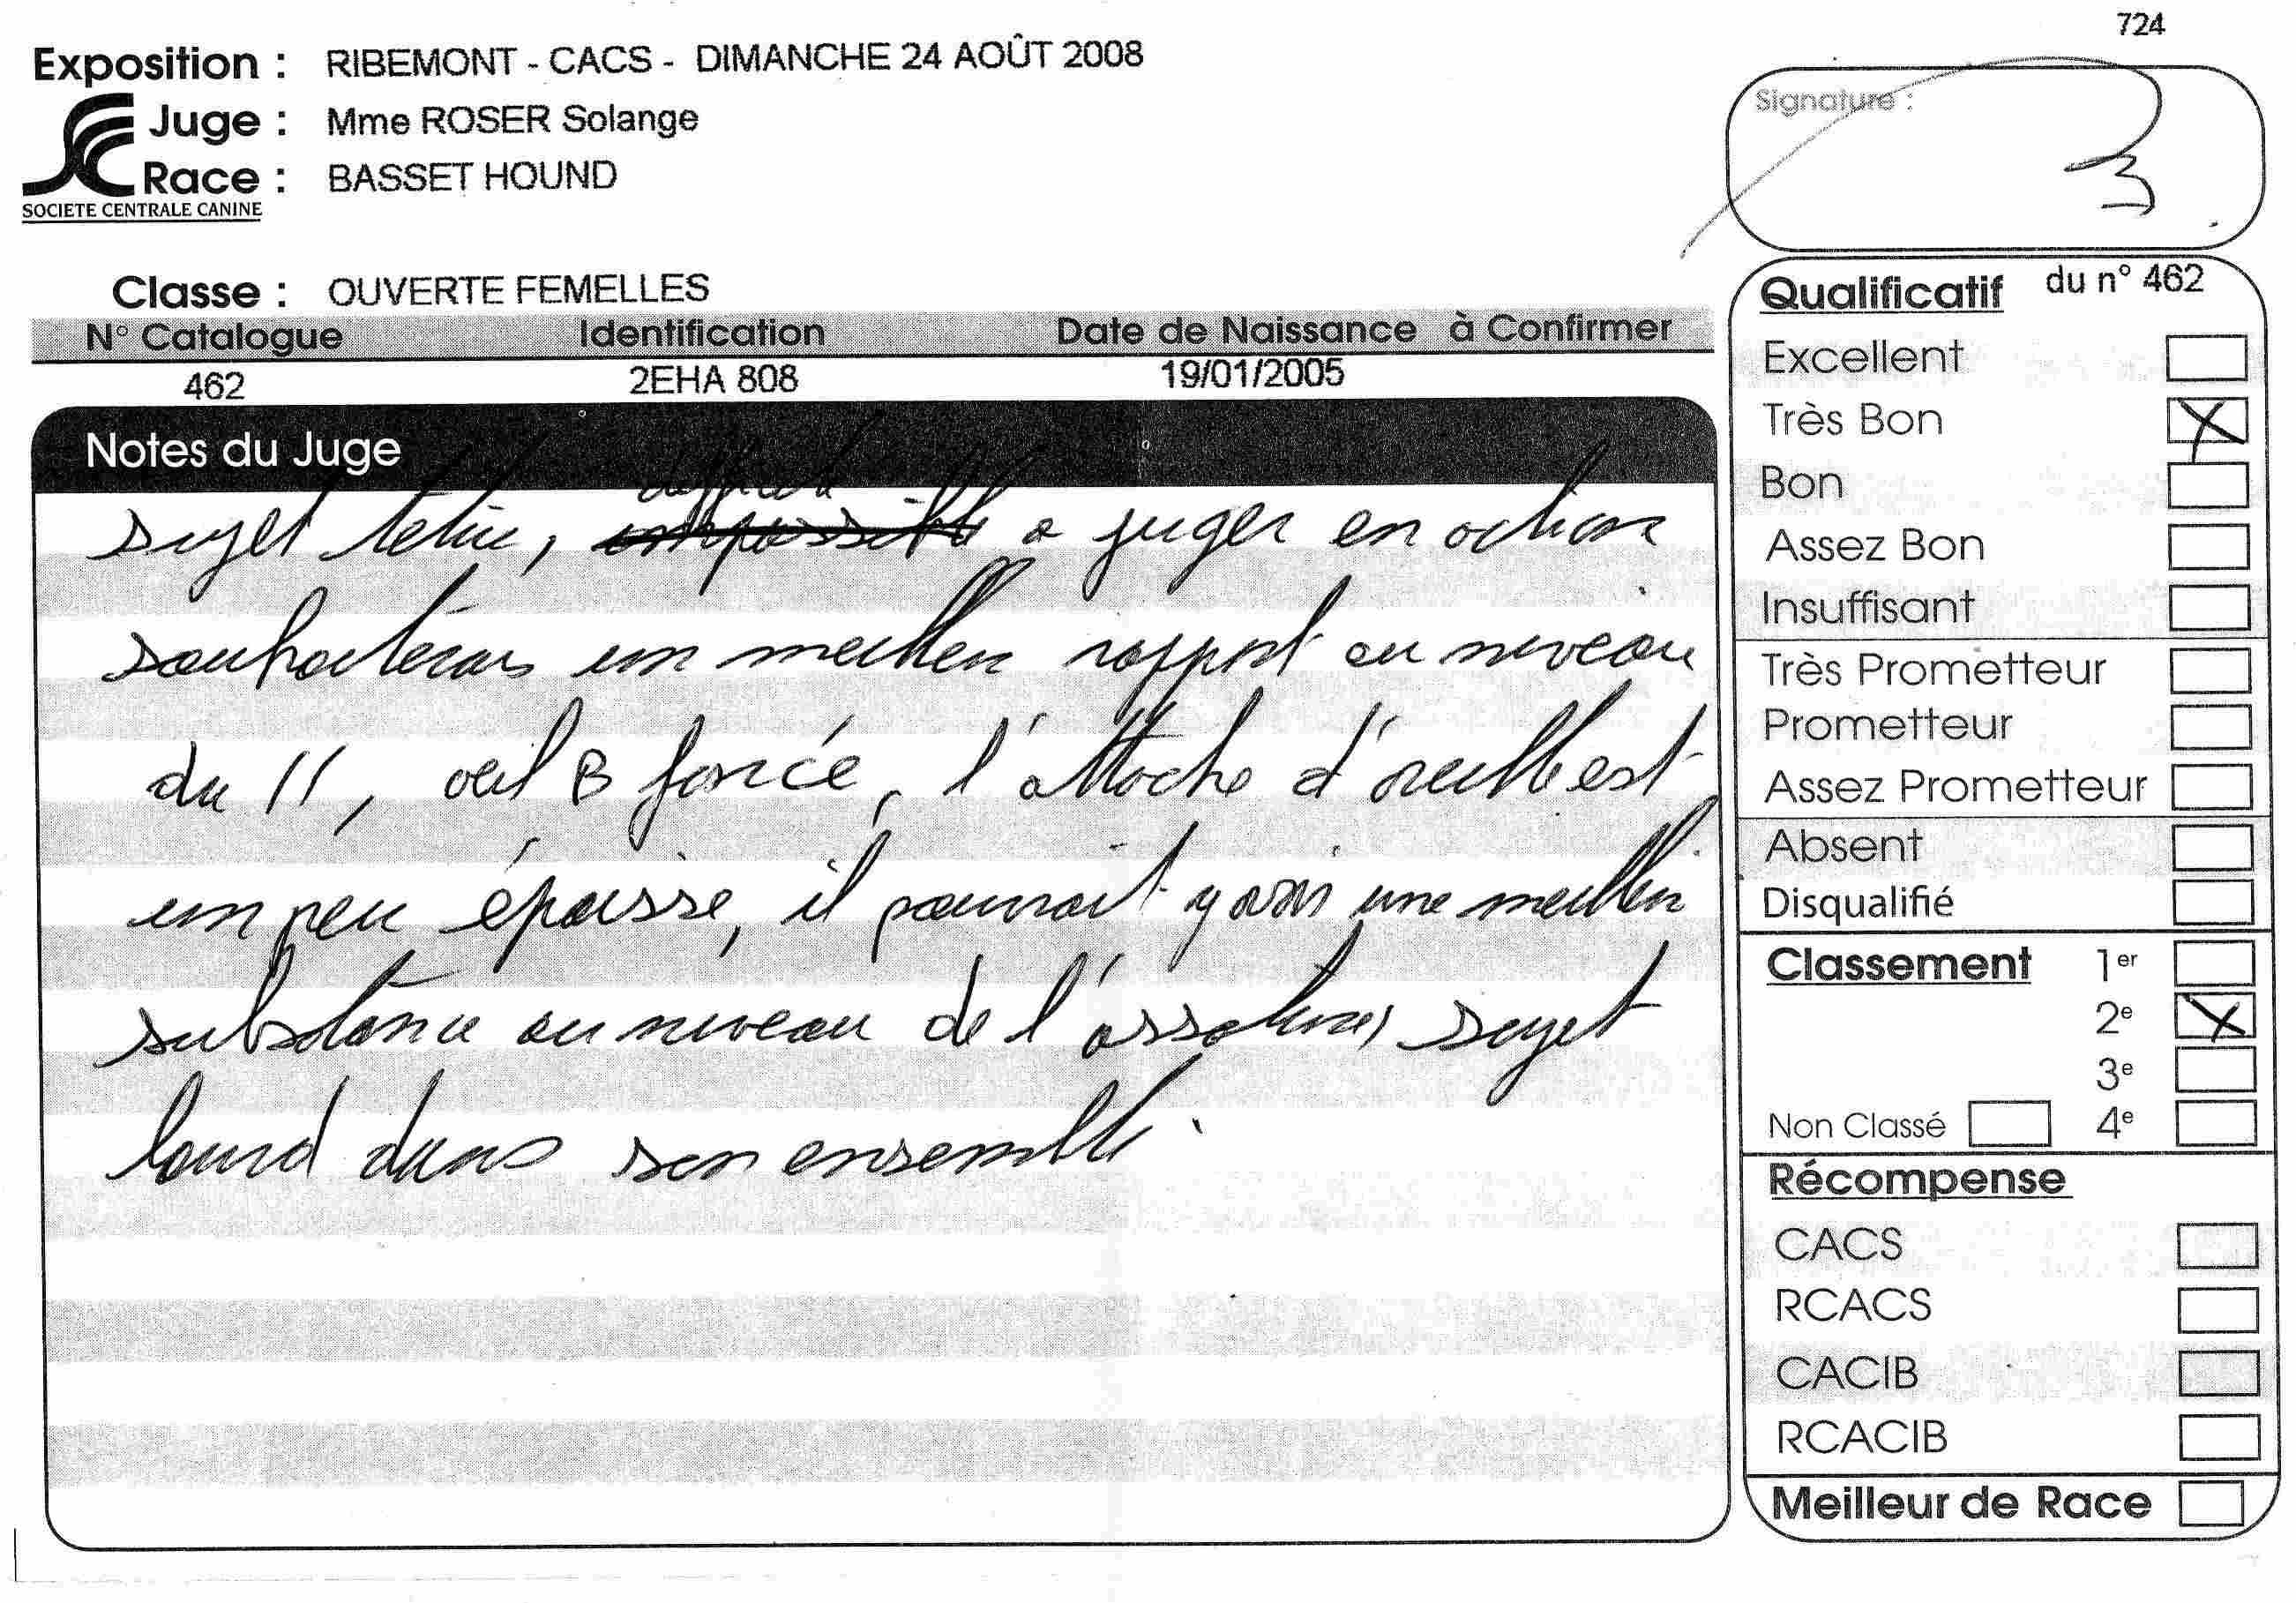 724
Exposition : RIBEMONT - CACS - DIMANCHE 24 AOÛT 2008
Juge : Mme ROSER Solange
Race : BASSET HOUND
SOCIETE CENTRALE CANINE
Signature :
Classe : OUVERTE FEMELLES
N° Catalogue Identification Date de Naissance à Confirmer
462 2EHA 808 19/01/2005
Notes du Juge
difficile
sujet à juger en action
souhaiterais un meilleur rapport au niveau
du //, oeil B foncé, l'attache d'oreille est
un peu épaisse, il pourrait y avoir une meilleur
substance au niveau de l'ossature, sujet
lourd dans son ensemble.
Qualificatif du n° 462
Excellent
Très Bon
Bon
Assez Bon
Insuffisant
Très Prometteur
Prometteur
Assez Prometteur
Absent
Disqualifié
Classement 1er
2e
3e
Non Classé 4e
Récompense
CACS
RCACS
CACIB
RCACIB
Meilleur de Race